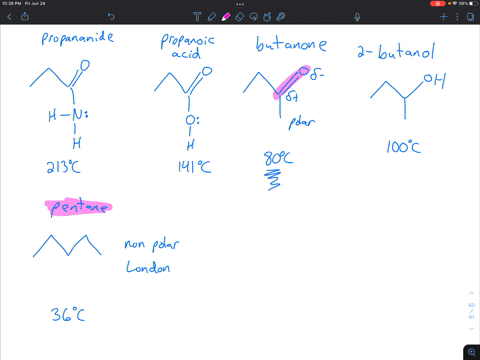 10:38 PM Fri Jun 24
propanamide
propanoic
acid
butanone
2-butanol
O
H-N:
H
213°C
O
O:
H
141°C
O δ-
δ+
polar
80°C
OH
100°C
pentane
non polar
London
36°C